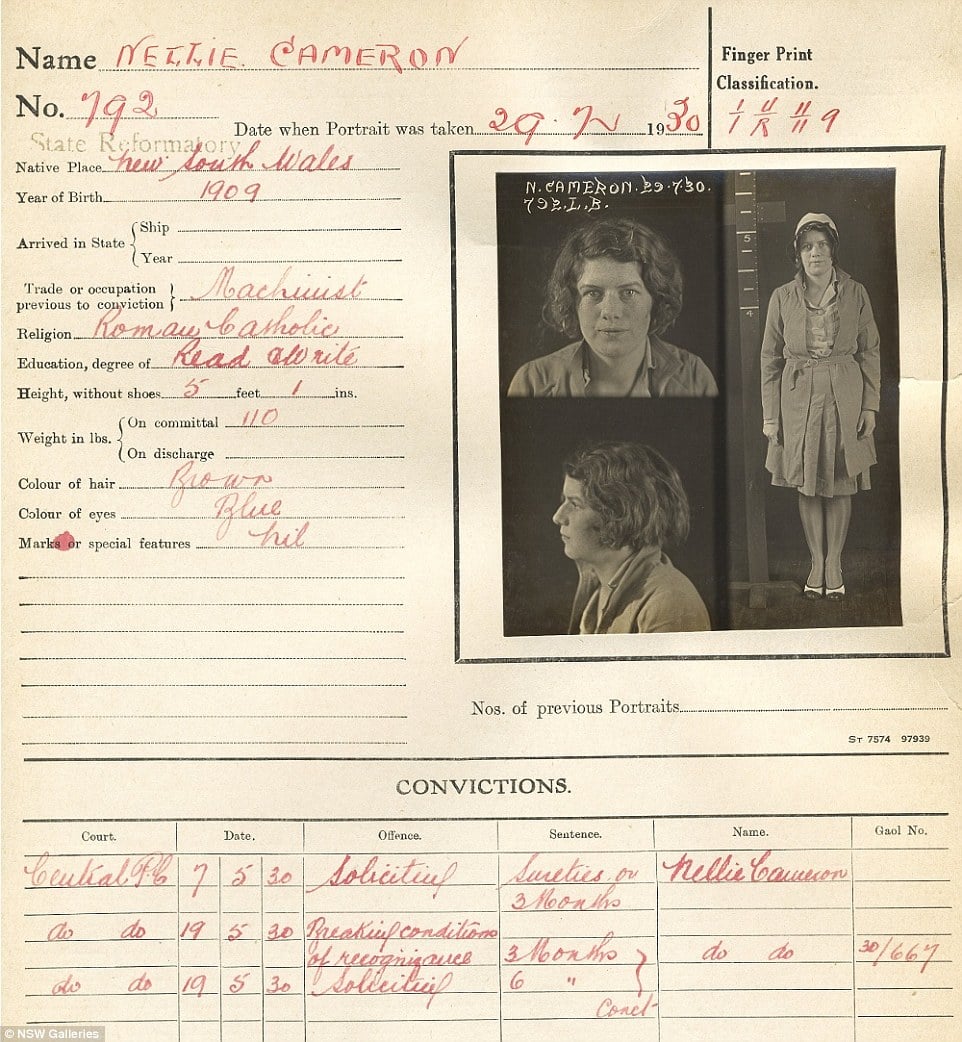 Name NELLIE CAMERON
No. 792
Finger Print
Classification.
1 U 11 9
1 R 11
Date when Portrait was taken 29.7 1930
State Reformatory
Native Place New South Wales
Year of Birth 1909
Arrived in State { Ship
Year
Trade or occupation
previous to conviction } Machinist
Religion Roman Catholic
Education, degree of Read & Write
Height, without shoes 5 feet 1 ins.
Weight in lbs. { On committal 110
On discharge
Colour of hair Brown
Colour of eyes Blue
Marks or special features Nil
N. CAMERON. 29.7.30.
792.L.B.
5
4
Nos. of previous Portraits
ST 7574 97939
CONVICTIONS.
Court. Date. Offence. Sentence. Name. Gaol No.
Central P.C 7 5 30 Soliciting Sureties or Nellie Cameron
3 Months
do do 19 5 30 Breaking conditions
of recognizance 3 Months } do do 30/667
do do 19 5 30 Soliciting 6 "
Conct
© NSW Galleries